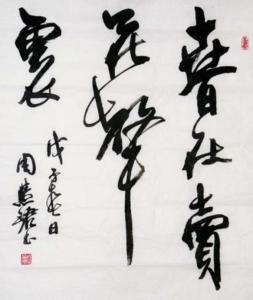 春在賣
花聲
裏
戊子春日
周慧珺书